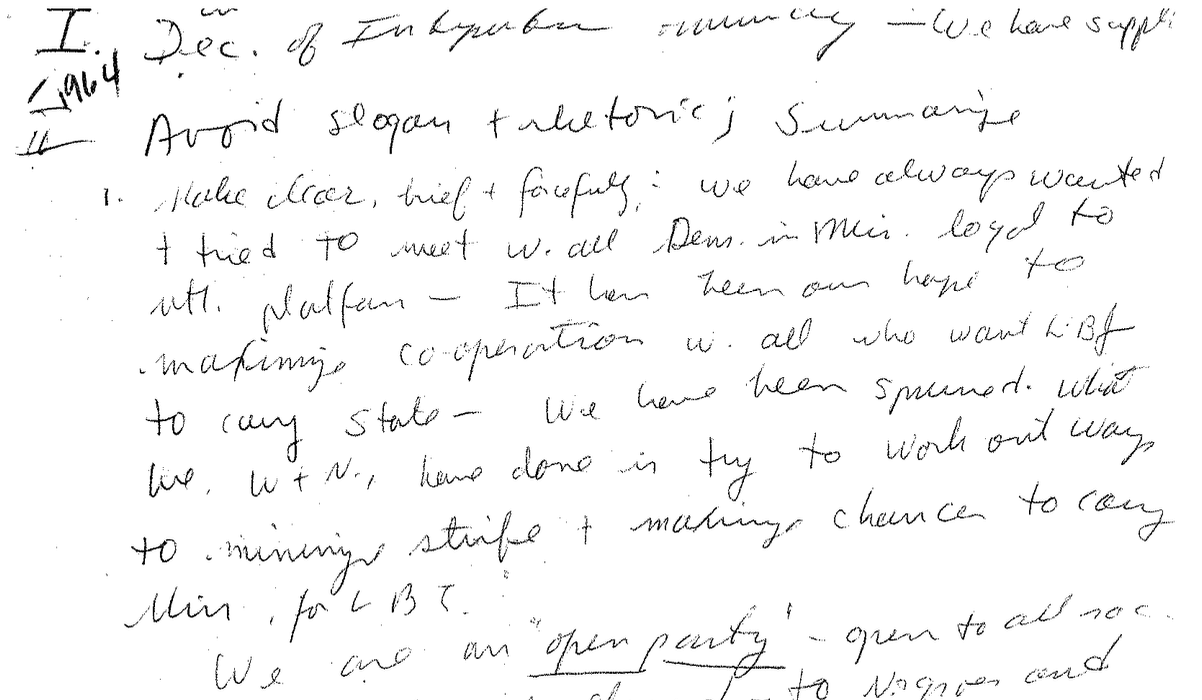 I. Dec. of Independen summary — We have suppli
1964
Avoid slogan + rhetoric; Summarize
1. Make clear, brief + forcefully: we have always wanted
+ tried to meet w. all Dems. in Miss. loyal to
natl. platform — It has been our hope to
maximize co-operation w. all who want LBJ
to carry state — We have been spurned. What
we, W + N., have done is try to work out ways
to minimize strife + maximize chances to carry
Miss. for LBJ.
We are an "open party" - open to all rac
to Negroes and